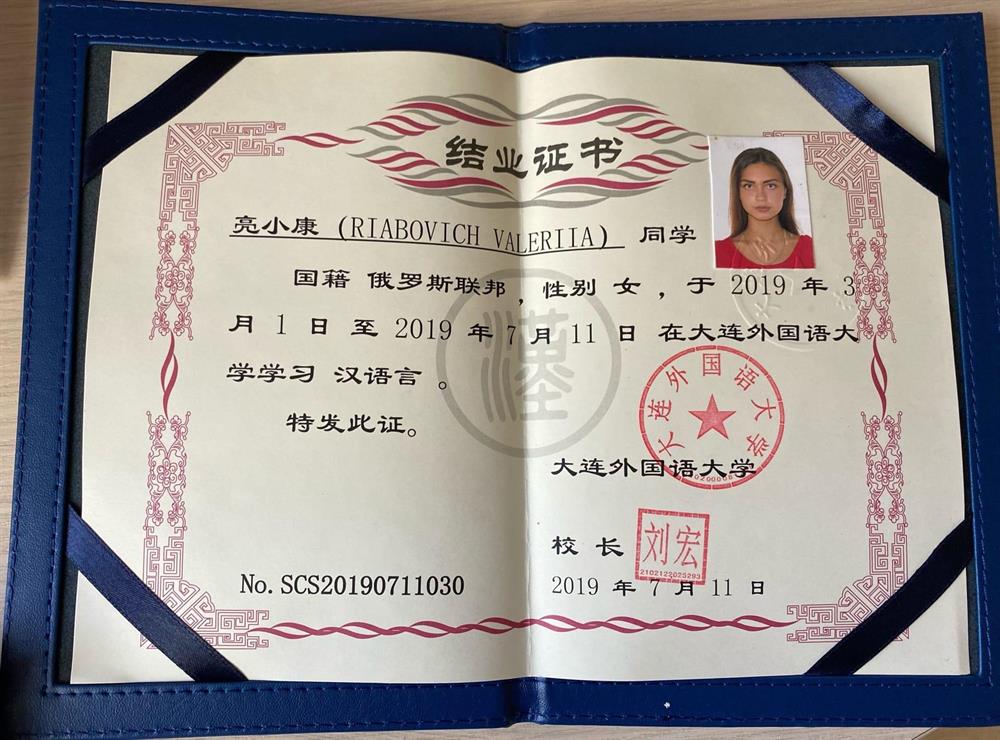 结业证书
亮小康 (RIABOVICH VALERIIA) 同学
国籍 俄罗斯联邦，性别 女，于 2019 年 3
月 1 日 至 2019 年 7 月 11 日 在大连外国语大
学学习 汉语言 。
特发此证。
漢
大连外国语大学
大连外国语大学
校 长 刘宏
2102122025293
2019 年 7 月 11 日
No. SCS20190711030